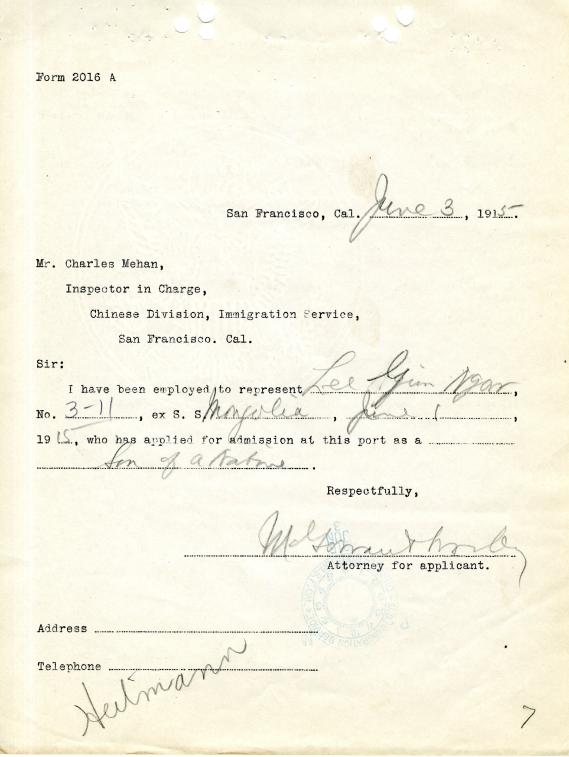 Form 2016 A
San Francisco, Cal. June 3, 1915.
Mr. Charles Mehan,
Inspector in Charge,
Chinese Division, Immigration Service,
San Francisco. Cal.
Sir:
I have been employed to represent Lee Gim Ngar,
No. 3-11, ex S. S. Mongolia, June 1,
1915, who has applied for admission at this port as a
Son of a Native.
Respectfully,
McGowan & Worley
Attorney for applicant.
Address
Telephone
Heitmann
7